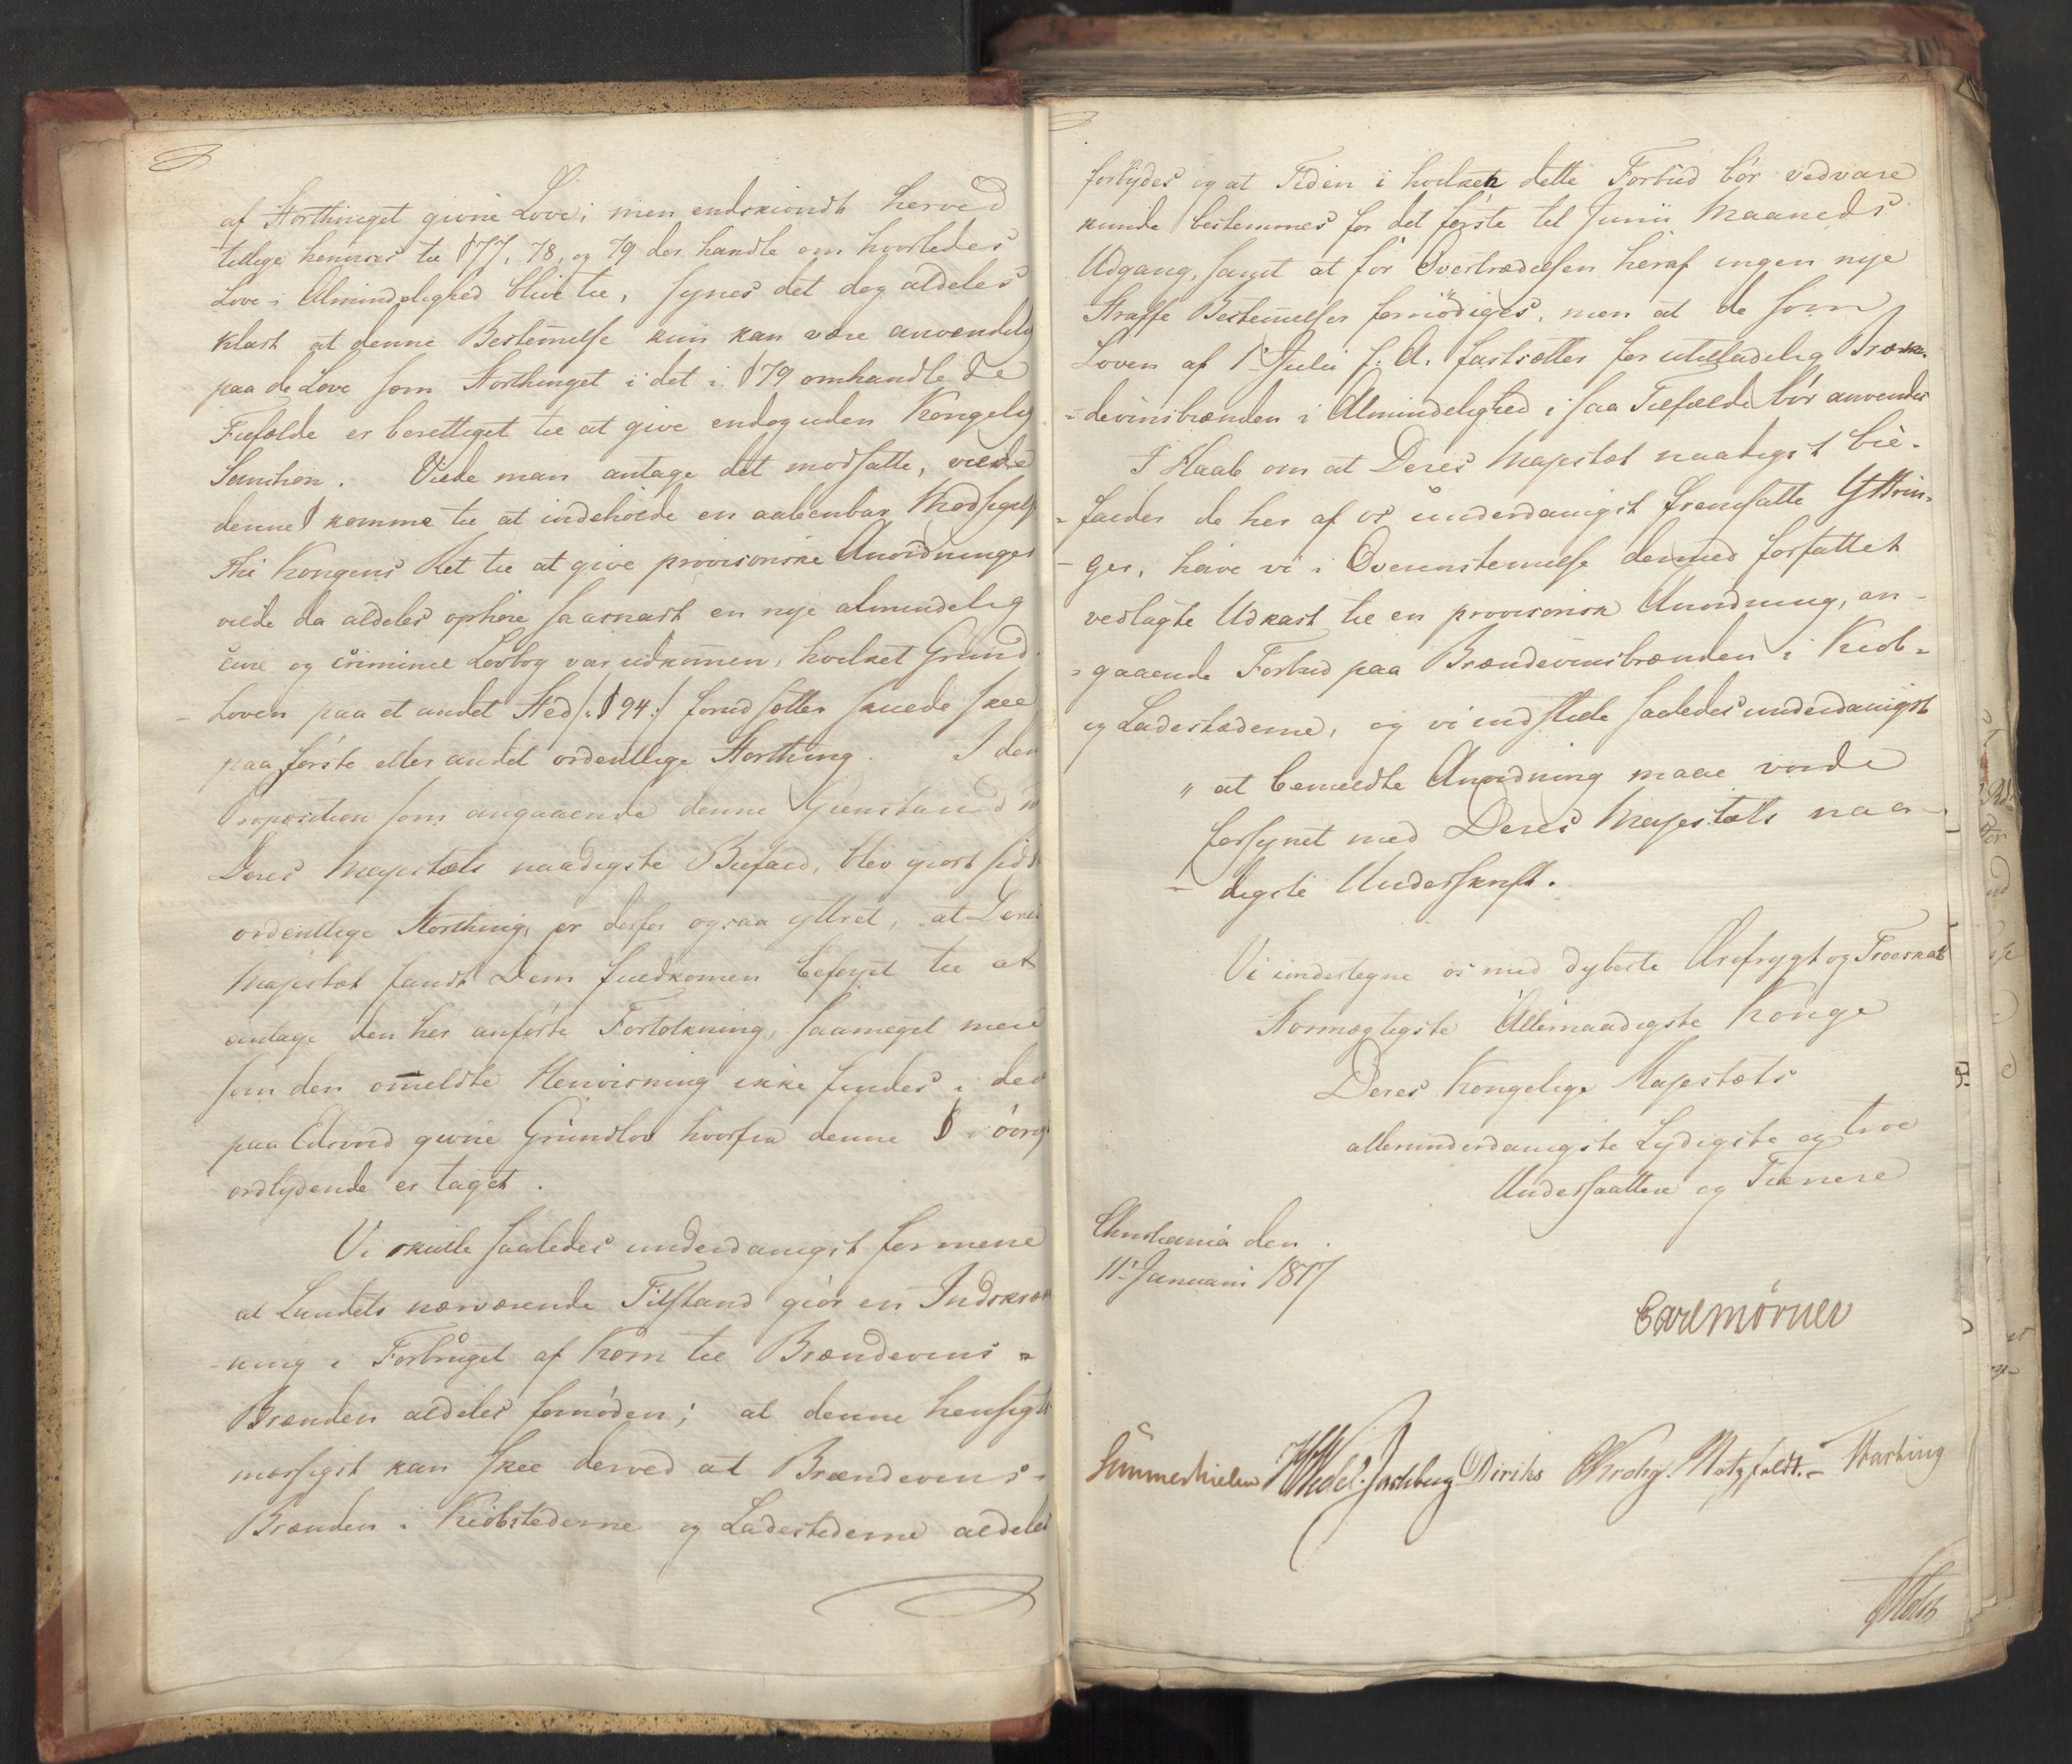 af Storthinget givne Love; men endskiøndt herved
tillige henvises til § 77, 78, og 79 der handle om hvorledes
Love i Almindelighed blive til, synes det dog aldeles
klart at denne Bestemelse kun kan være anvendelig
paa de Love som Storthinget i det i § 79 omhandlede
Tilfælde er berettiget til at give endog uden Kongelig
Sanction. Vilde man antage det modsatte, vilde
denne § komme til at indeholde en aabenbar Modsigelse
thi Kongens Ret til at give provisoriske Anordninger
vilde da aldeles ophøre saasnart en nye almindelig
Civil og Criminel Lovbog var udkommen, hvilket Grund
-Loven paa et andet Sted /: § 94 :/ forudsætter skulde skee
paa første eller andet ordentlige Storthing. I den
Proposition som angaaende denne Gienstand
Deres Majestæts naadigste Befaled, blev giort sidste
ordentlige Storthing, er derfor ogsaa yttret, at Deres
Majestæt fandt Dem fuldkomen beføyet til at
antage den her anførte Fortolkning, saameget mere
som den omeldte Henviisning ikke findes i den
paa Eidsvold givne Grundlov hvorfra denne § i øvrigt
ordlydende er taget.
Vi skulle saaledes underdanigst formene
at Landets nærværende Tilstand giør en Indskrænk
-ning i Forbruget af Korn til Brændeviins=
Brænden aldeles fornøden; at denne hensigts
mæssigst kan skee derved at Brændeviins=
Brænden i Kiøbstæderne og Ladestæderne aldeles
forbydes og at Tiden i hvilken dette Forbud bør vedvare
kunde bestemmes for det første til Junii Maaneds
Udgang, samt at for Overtrædelsen heraf ingen nye
Straffe Bestemelser fornødiges, men at de som
Loven af 1. Julii f. A. fastsætter for utilladelig Bræn
=deviinsbrænden i Almindelighed i saa Tilfælde bør anvendes
I Haab om at Deres Majestæt naadigst bie-
=falder de her af os underdanigst fremsatte Yttrin=
-ger, have vi i Overenstemelse dermed forfattet
vedlagte Udkast til en provisorisk Anordning, an-
=gaaende Forbud paa Brændeviinsbrænden i Kiøb=
og Ladestæderne, og vi indstille saaledes underdanigst
" at bemeldte Anordning maae vorde
forsynet med Deres Majestæts naa-
-digste Underskrift.
Vi undertegne os med dybeste Ærefrygt og Troeskab
Stormægtigste Allernaadigste Konge
Deres Kongelige Majestæts
allerunderdanigste Lydigste og troe
Undersaattere og Tienere
Christiania den
11. Januarii 1817
Carl Mörner
Sommerhielm HWedel-Jarlsberg Diriks Krohg. Motzfeldt.- Fasting
Holst